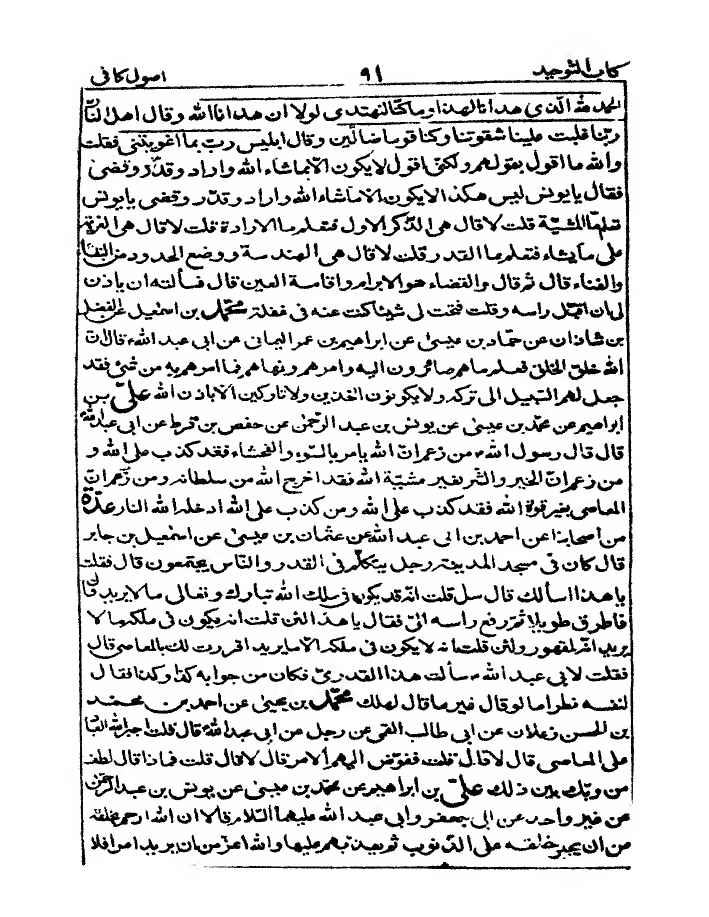 كتاب التوحيد ٩١ اصول كافى
الحمد لله الّذى هدانا لهذا وما كنّا لنهتدى لولا ان هدانا الله وقال اهل النّار
ربّنا غلبت علينا شقوتنا وكنا قوما ضالّين وقال ابليس ربّ بما اغويتنى فقلت
والله ما اقول بقولهم ولكنّى اقول لا يكون الّا بما شاء الله واراد وقدّر وقضى
فقال يا يونس ليس هكذا لا يكون الّا ما شاء الله واراد وقدّر وقضى يا يونس
تعلم ما المشيّة قلت لا قال هى الذّكر الاول فتعلم ما الارادة قلت لا قال هى العزيمة
على ما يشاء فتعلم ما القدر قلت لا قال هى الهندسة ووضع الحدود من البقاء
والفناء قال ثم قال والقضاء هو الابرام واقامة العين قال فسألته ان ياذن
لى ان اقبّل راسه وقلت فتحت لى شيئا كنت عنه فى غفلة محمّد بن اسمعيل عن الفضل
بن شاذان عن حمّاد بن عيسى عن ابراهيم بن عمر اليمانى عن ابى عبد الله ع قال انّ
الله خلق الخلق فعلم ما هم صائرون اليه وامرهم ونهاهم فما امرهم به من شئ فقد
جعل لهم السّبيل الى تركه ولا يكونون اخذين ولا تاركين الّا باذن الله علىّ بن
ابراهيم عن محمّد بن عيسى عن يونس بن عبد الرّحمن عن حفص بن قرط عن ابى عبد الله
قال قال رسول الله ص من زعم انّ الله يامر بالسّوء والفحشاء فقد كذب على الله و
من زعم انّ الخير والشّر بغير مشيّة الله فقد اخرج الله من سلطانه ومن زعم انّ
المعاصى بغير قوة الله فقد كذب على الله ومن كذب على الله ادخله الله النار عدّة
من اصحابنا عن احمد بن ابى عبد الله عن عثمان بن عيسى عن اسمعيل بن جابر
قال كان فى مسجد المدينة رجل يتكلّم فى القدر والنّاس يجتمعون قال فقلت
يا هذا اسالك قال سل قلت انّه قد يكون فى ملك الله تبارك وتعالى ما لا يريد قال
فاطرق طويلا ثم رفع راسه الىّ فقال يا هذا لئن قلت انه يكون فى ملكه ما لا
يريد انّه لمقهور ولئن قلت انه لا يكون فى ملكه الّا ما يريد اقررت لك بالمعاصى قال
فقلت لابى عبد الله ع سالت هذا القدرىّ فكان من جوابه كذا وكذا فقال
لنفسه نظر اما لو قال غير ما قال لهلك محمّد بن يحيى عن احمد بن محمد
بن الحسن زعلان عن ابى طالب القمى عن رجل عن ابى عبد الله ع قال قلت اجبر الله العباد
على المعاصى قال لا قال قلت ففوّض اليهم الامر قال لا قال قلت فماذا قال لطف
من ربّك بين ذلك علىّ بن ابراهيم عن محمّد بن عيسى عن يونس بن عبد الرّحمن
عن غير واحد عن ابى جعفر وابى عبد الله عليهما السّلام قالا ان الله ارحم بخلقه
من ان يجبر خلقه على الذّنوب ثم يعذبهم عليها والله اعزّ من ان يريد امرا فلا